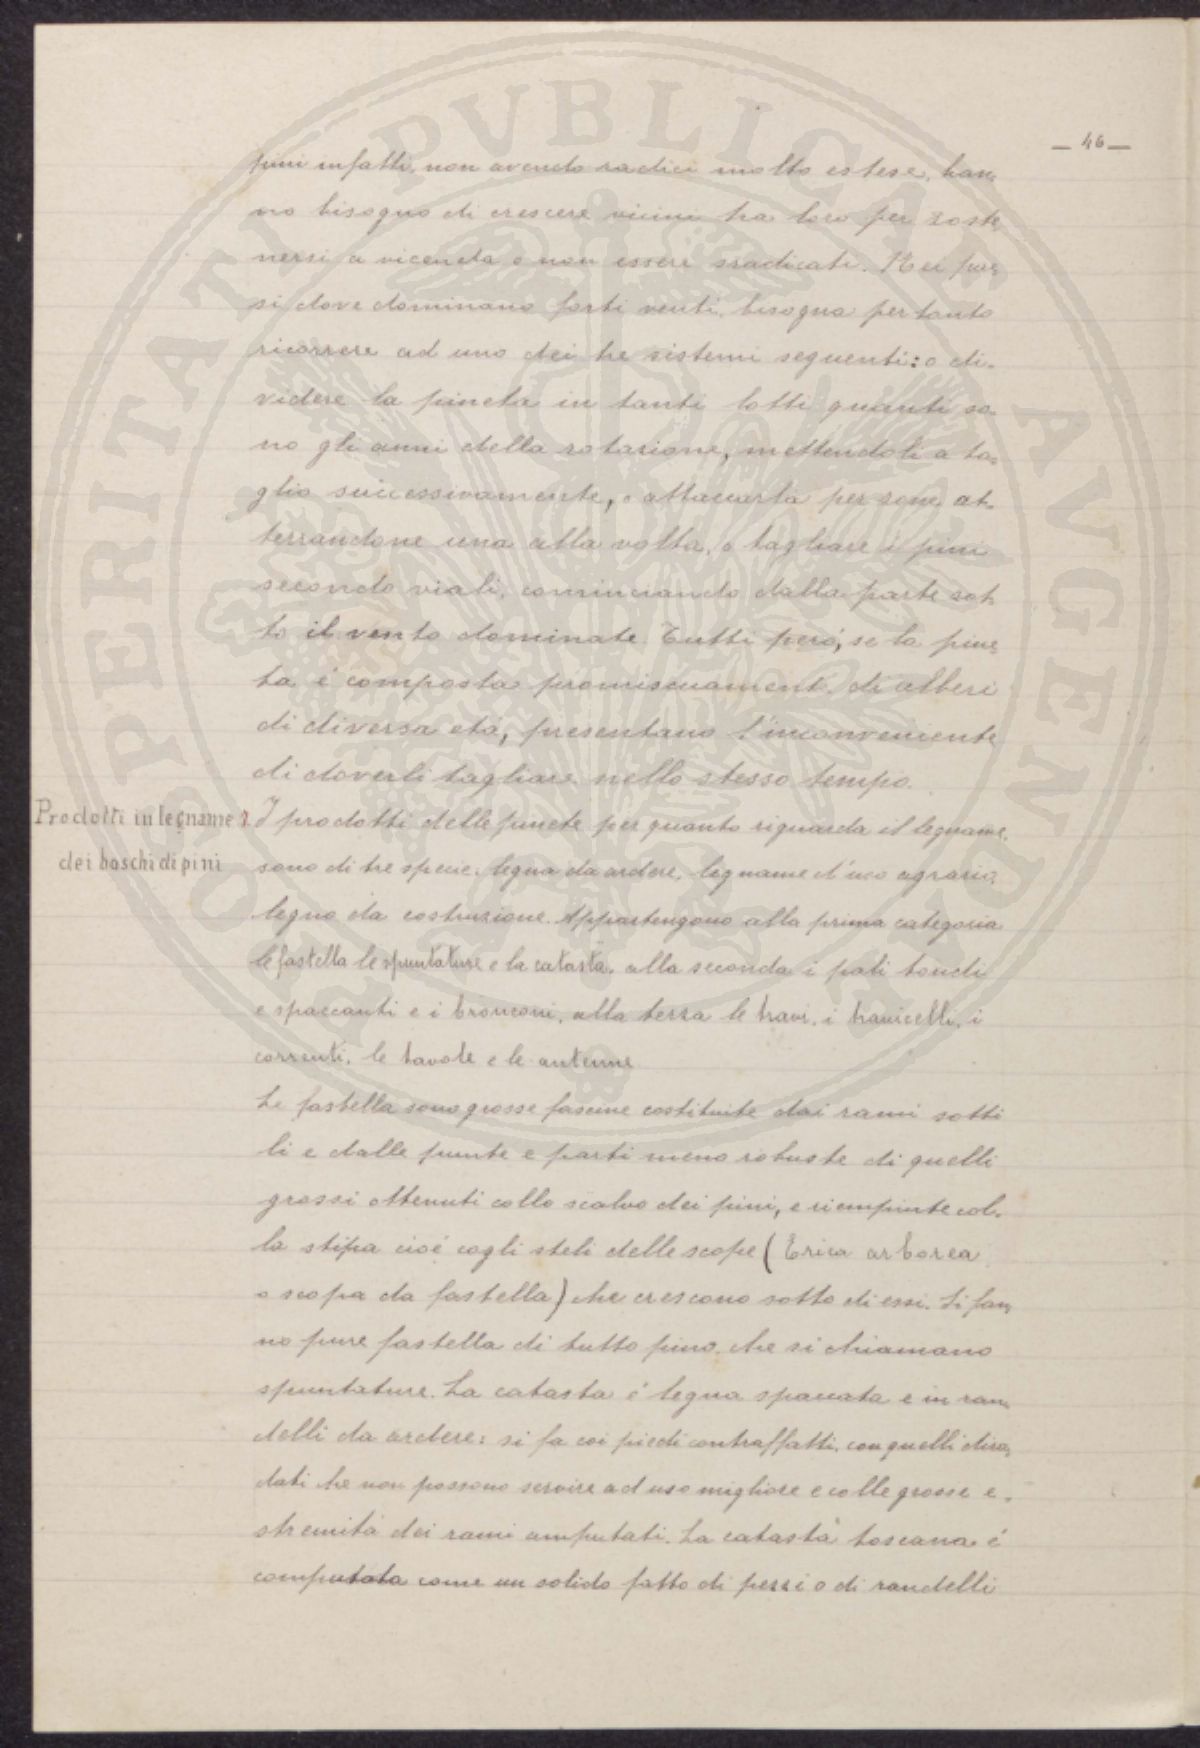 — 46 —
pini infatti, non avendo radici molto estese, han-
no bisogno di crescere vicini tra loro per soste
nersi a vicenda e non essere sradicati. Nei pae-
si dove dominano forti venti, bisogna pertanto
ricorrere ad uno dei tre sistemi seguenti: o di-
videre la pineta in tanti lotti quanti so-
no gli anni della rotazione, mettendoli a ta-
glio successivamente, o attaccarla per zone at-
terrandone una alla volta, o tagliare i pini
secondo viali, cominciando dalla parte sot-
to il vento dominate. Tutti però, se la pine-
ta è composta promiscuament. di alberi
di diversa età, presentano l'inconveniente
di doverli tagliare nello stesso tempo.
Prodotti in legname
dei boschi di pini
I prodotti delle pinete per quanto riguarda il legname,
sono di tre specie: legna da ardere, legname d'uso agrario,
legno da costruzione. Appartengono alla prima categoria
le fastella le spuntature e la catasta, alla seconda i pali tondi
e spaccanti e i bronconi, alla terza le travi, i travicelli, i
correnti, le tavole e le antenne
Le fastella sono grosse fascine costituite dai rami sotti
li e dalle punte e parti meno robuste di quelli
grossi ottenuti collo scalvo dei pini, e riempiute col-
la stipa cioè cogli steli delle scope (Erica arborea
o scopa da fastella) che crescono sotto di essi. Si fan-
no pure fastella di tutto pino, che si chiamano
spuntature. La catasta è legna spaccata e in ran-
delli da ardere: si fa coi piedi contraffatti, con quelli dira-
dati che non possono servire ad uso migliore e colle grosse e-
stremità dei rami amputati. La catasta toscana è
computata come un solido fatto di pezzi o di randelli
O PERITATI PVBLICAE AVGENDAE